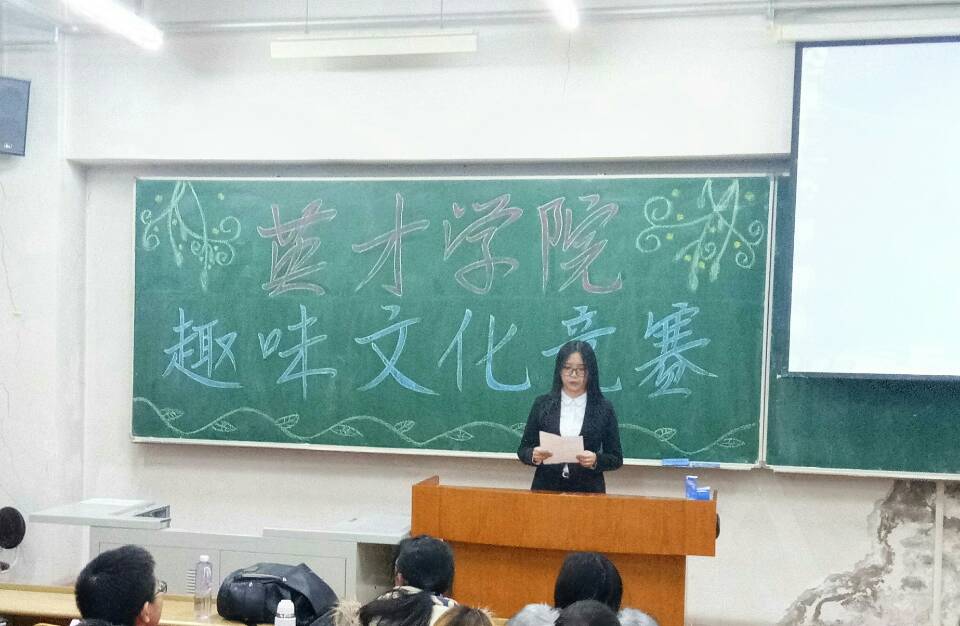 英才学院
趣味文化竞赛